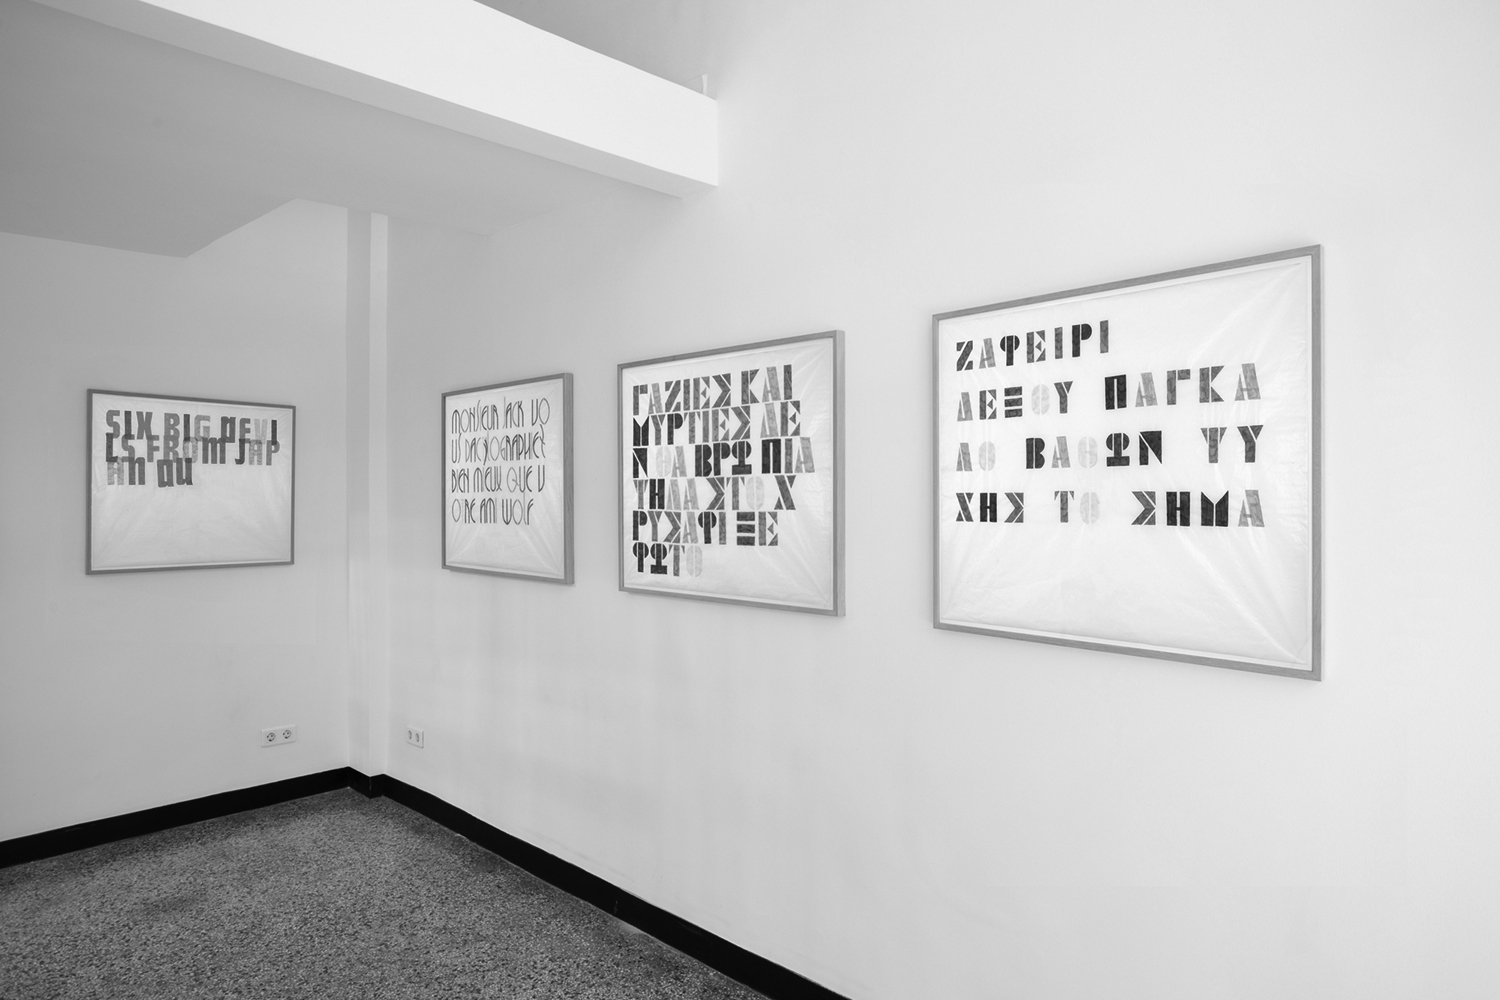 SIX BIG DEVI
LS FROM JAP
AN QU
MONSIEUR JACK VO
US DACTYLOGRAPHIEZ
BIEN MIEUX QUE V
OTRE AMI WOLF
ΓΑΖΙΕΣ ΚΑΙ
ΜΥΡΤΙΕΣ ΔΕ
Ν ΘΑ ΒΡΩ ΠΙΑ
ΨΗΛΑ ΣΤΟ Χ
ΡΥΣΑΦΙ ΞΕ
ΦΩΤΟ
ΖΑΦΕΙΡΙ
ΔΕΞΟΥ ΠΑΓΚΑ
ΛΟ ΒΑΘΩΝ ΨΥ
ΧΗΣ ΤΟ ΣΗΜΑ